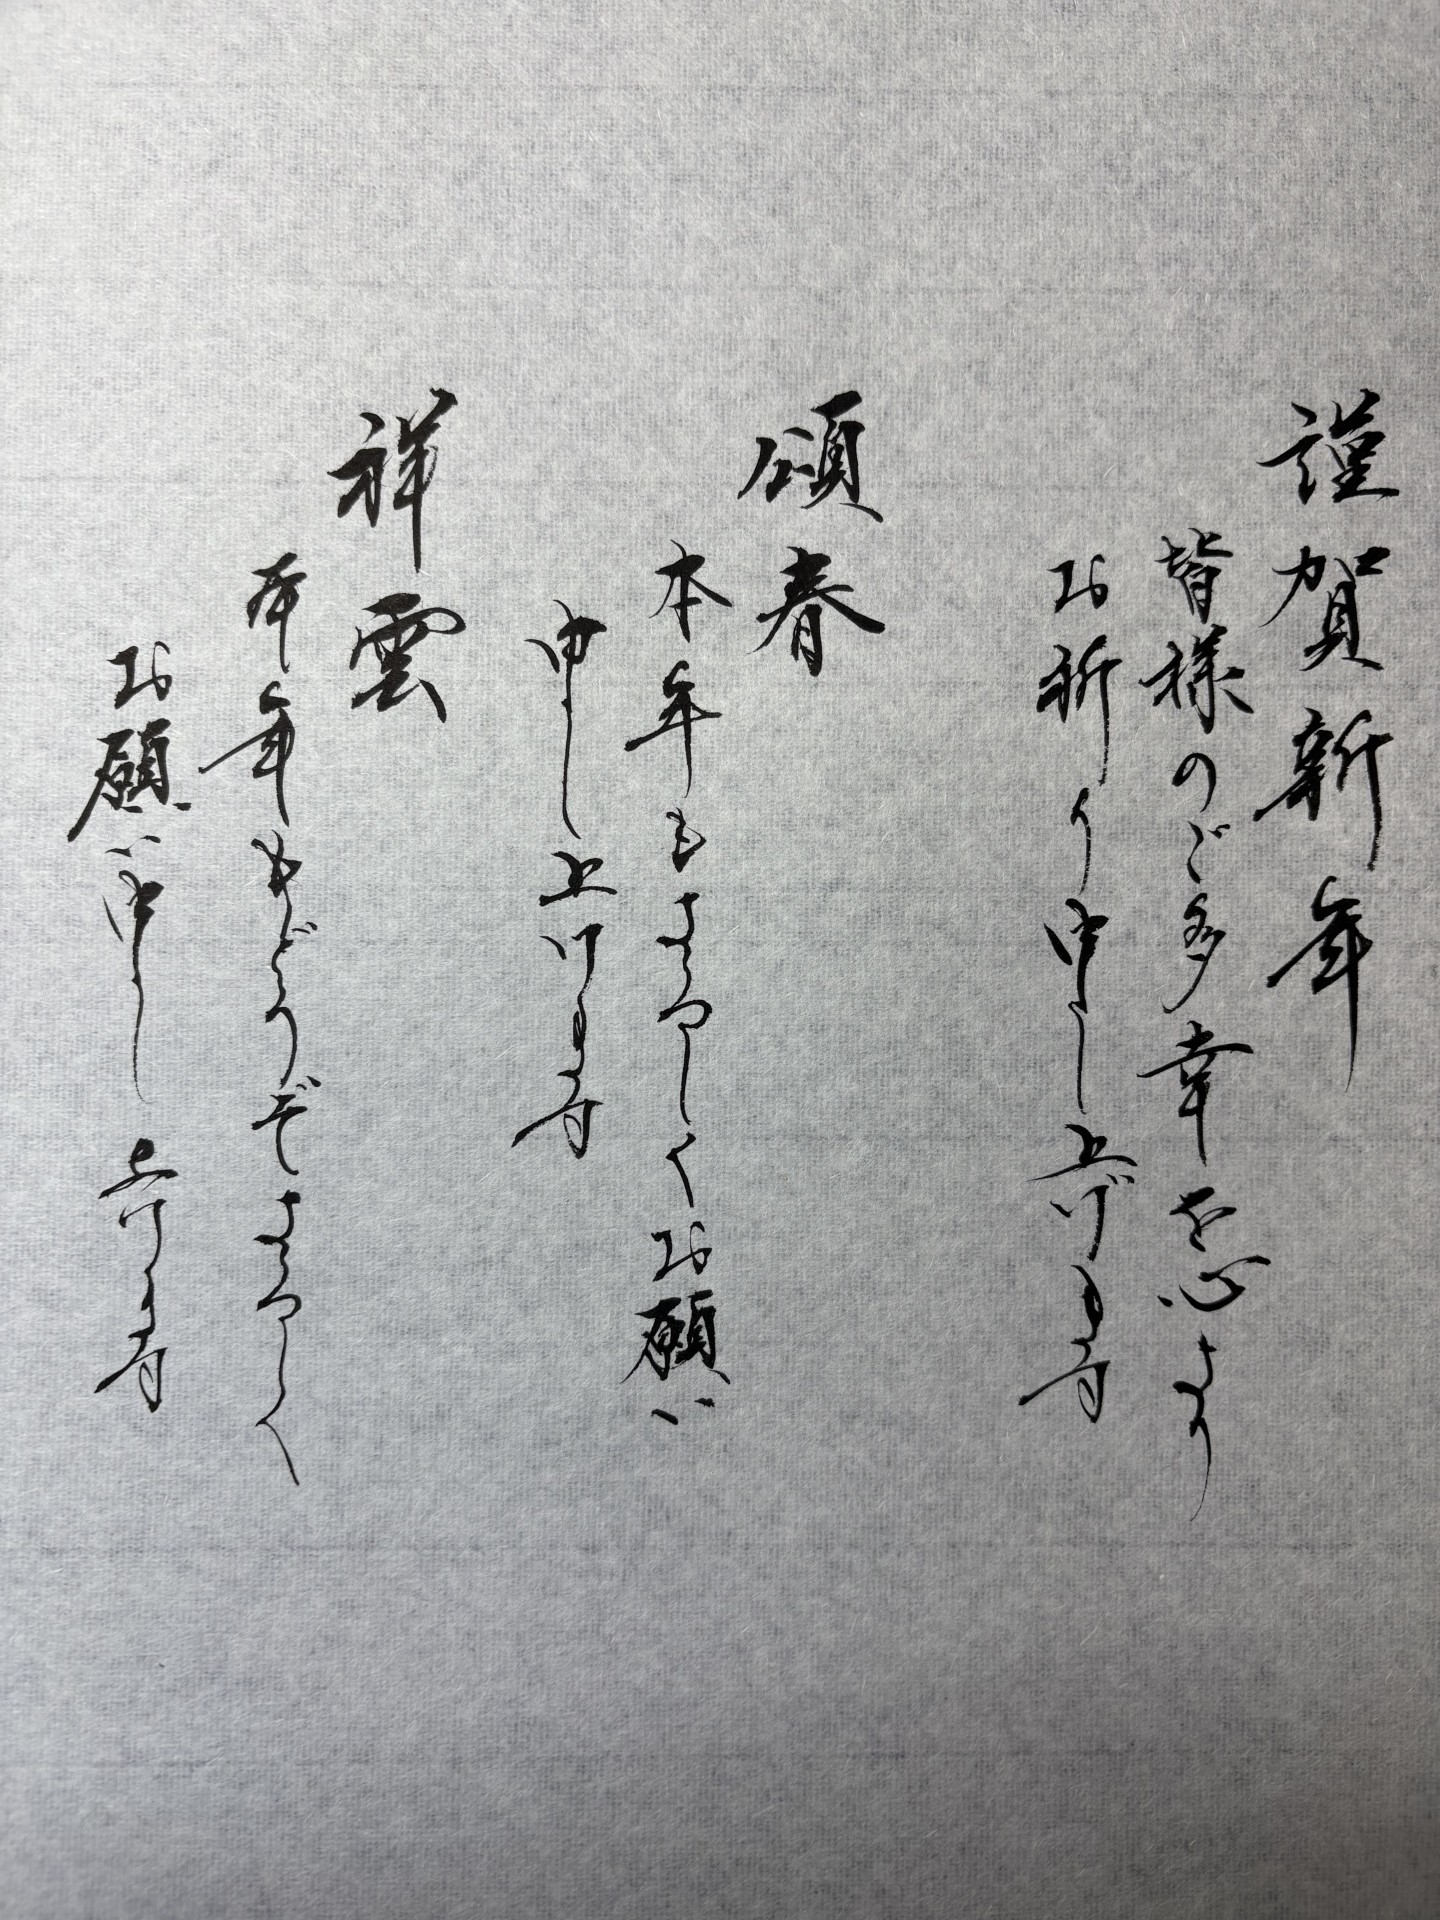 謹賀新年
皆様のご多幸を心より
お祈り申し上げます
頌春
本年もよろしくお願い
申し上げます
祥雲
本年もどうぞよろしく
お願い申し上げます